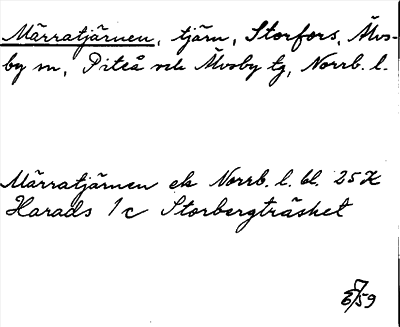 Märratjärnen, tjärn, Storfors, Älvs-
by sn, Piteå och Älvsby tg, Norrb. l.
Märratjärnen ek Norrb. l. bl. 25 K
Harads 1 c Storbergträsket